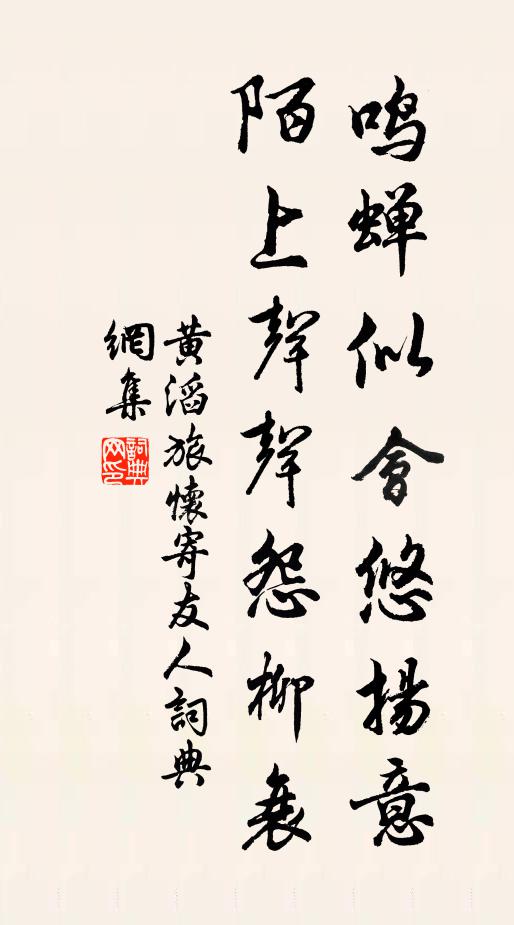 鳴蟬似會悠揚意
陌上聲聲怨柳衰
黃滔旅懷寄友人詞典
網集
詞典
网印